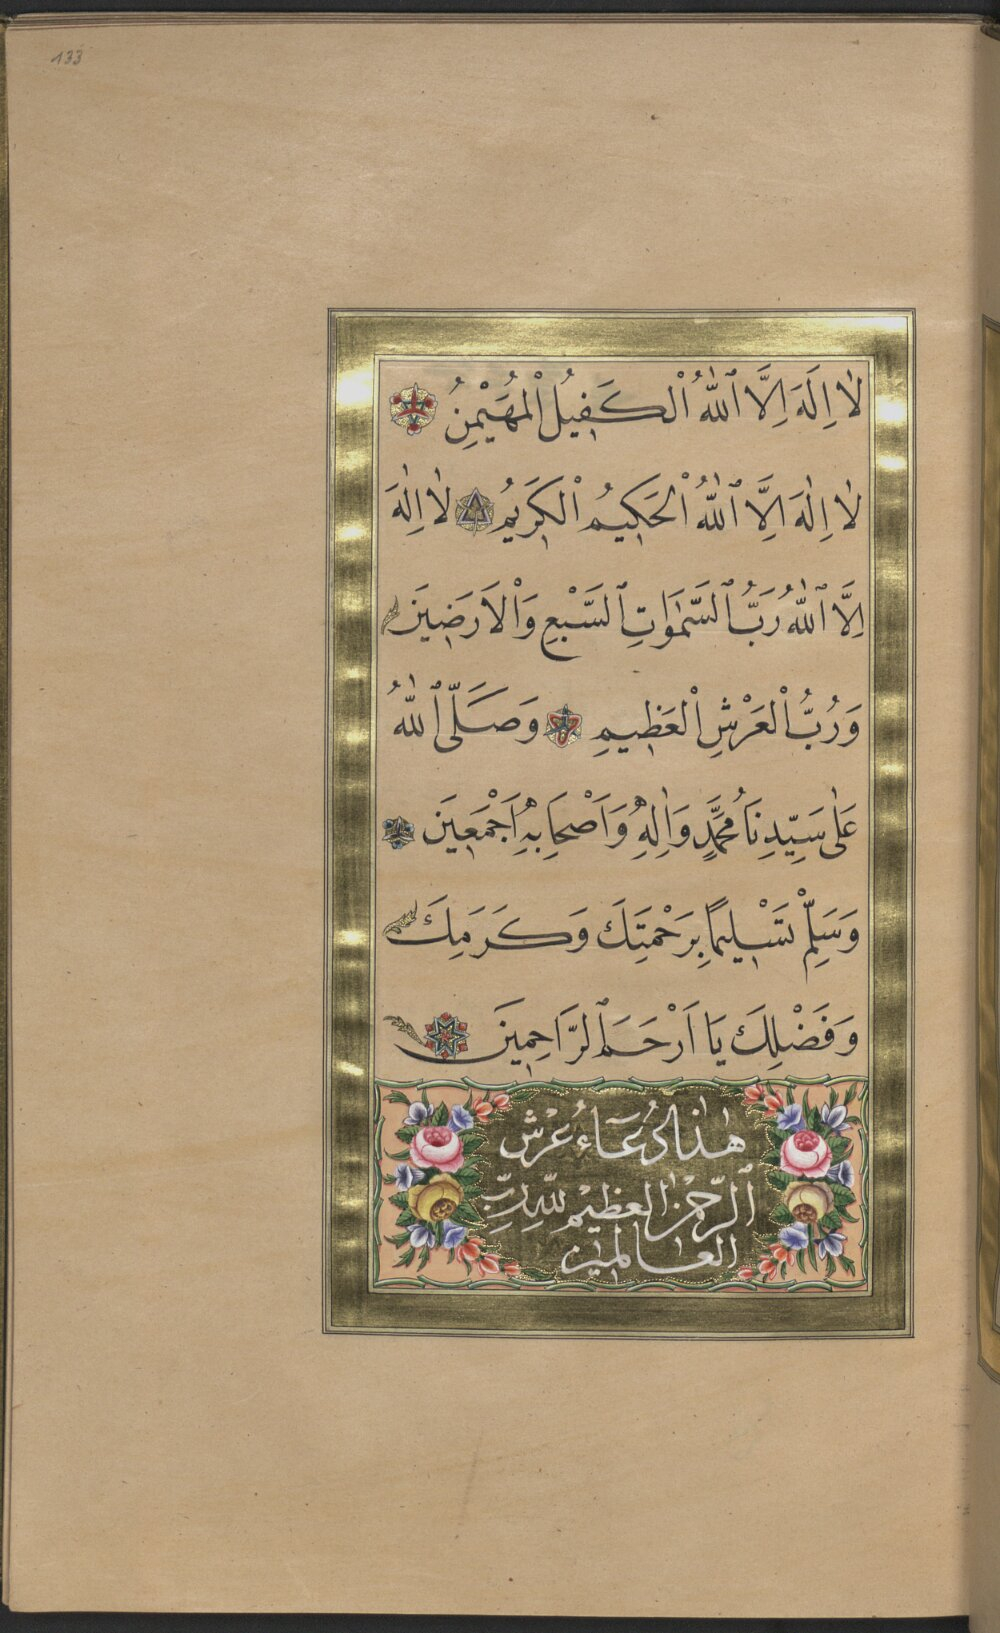 133
لَا اِلٰهَ اِلَّا ٱللّٰهُ اْلكَفِيلُ اْلمُهَيْمِنُ
لَا اِلٰهَ اِلَّا ٱللّٰهُ اْلحَكِيمُ اْلكَرِيمُ لَا اِلٰهَ
اِلَّا ٱللّٰهُ رَبُّ ٱلسَّمٰوَاتِ ٱلسَّبْعِ وَاْلاَرَضِينَ
وَرُبُّ اْلعَرْشِ اْلعَظِيمِ وَصَلَّى ٱللّٰهُ
عَلٰى سَيِّدِنَا مُحَمَّدٍ وَاٰلِهِ وَاَصْحَابِهِ اَجْمَعِينَ
وَسَلِّمْ تَسْلِيمًا بِرَحْمَتِكَ وَكَرَمِكَ
وَفَضْلِكَ يَا اَرْحَمَ ٱلرَّاحِمِينَ
هٰذَا دُعَاءُ عَرْشِ
ٱلرَّحْمٰنِ العَظِيمْ لِلّٰهِ رَبِّ
العَالَمِينَ